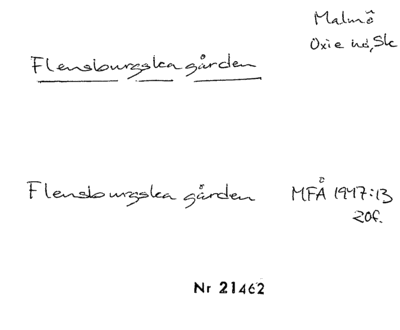 Malmö
Oxie hd, Sk
Flensburgska gården
Flensburgska gården MFÅ 1947:13
20f.
Nr 21462